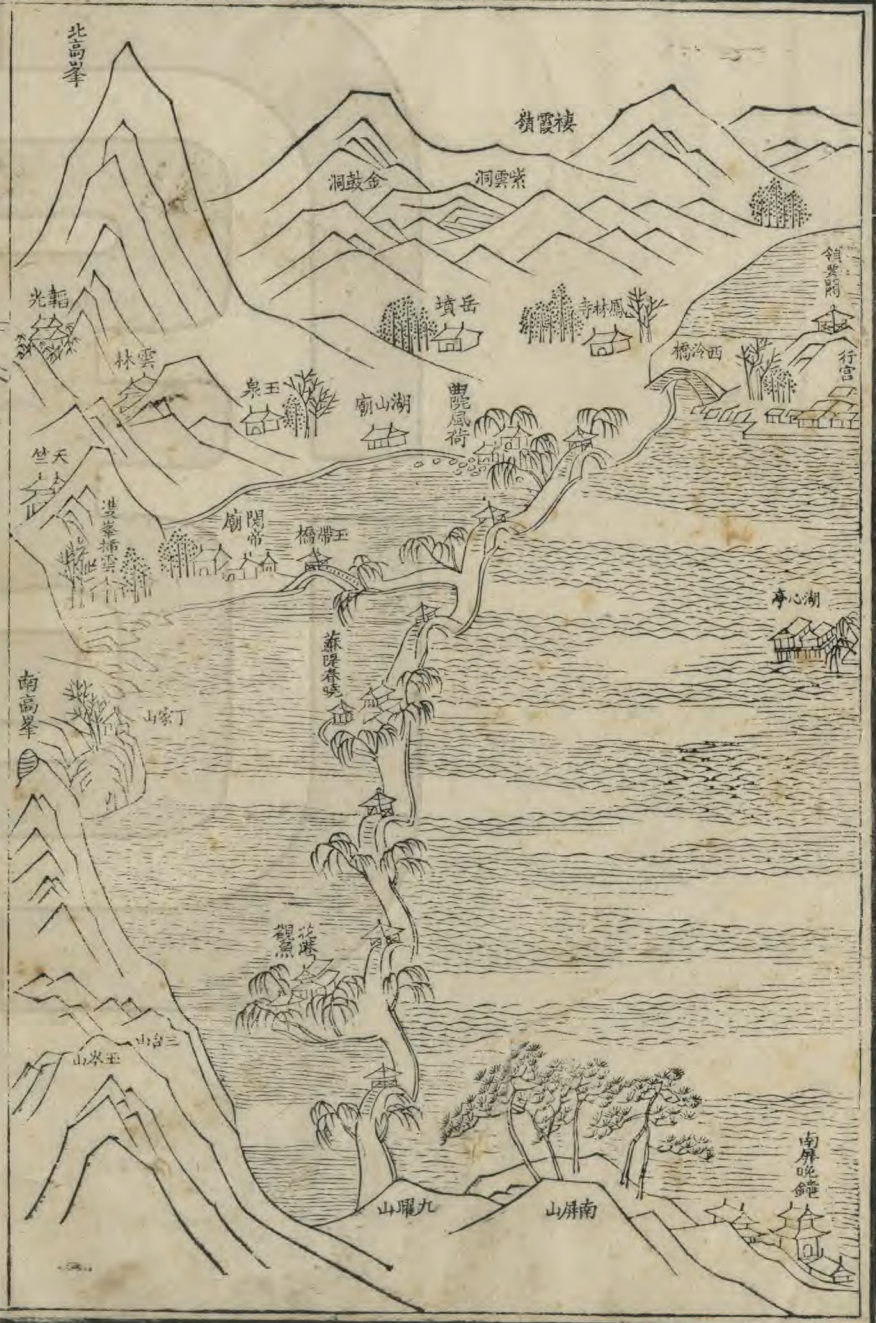 北高峯
棲霞嶺
金鼓洞
紫雲洞
韜光
岳墳
鳳林寺
西泠橋
行宮
雲林
玉泉
湖山廟
曲院風荷
天竺
雙峯揷雲
關帝廟
玉帶橋
湖心亭
蘇隄春曉
南高峯
丁家山
花港觀魚
三台山
玉岑山
九曜山
南屏山
南屏晚鐘